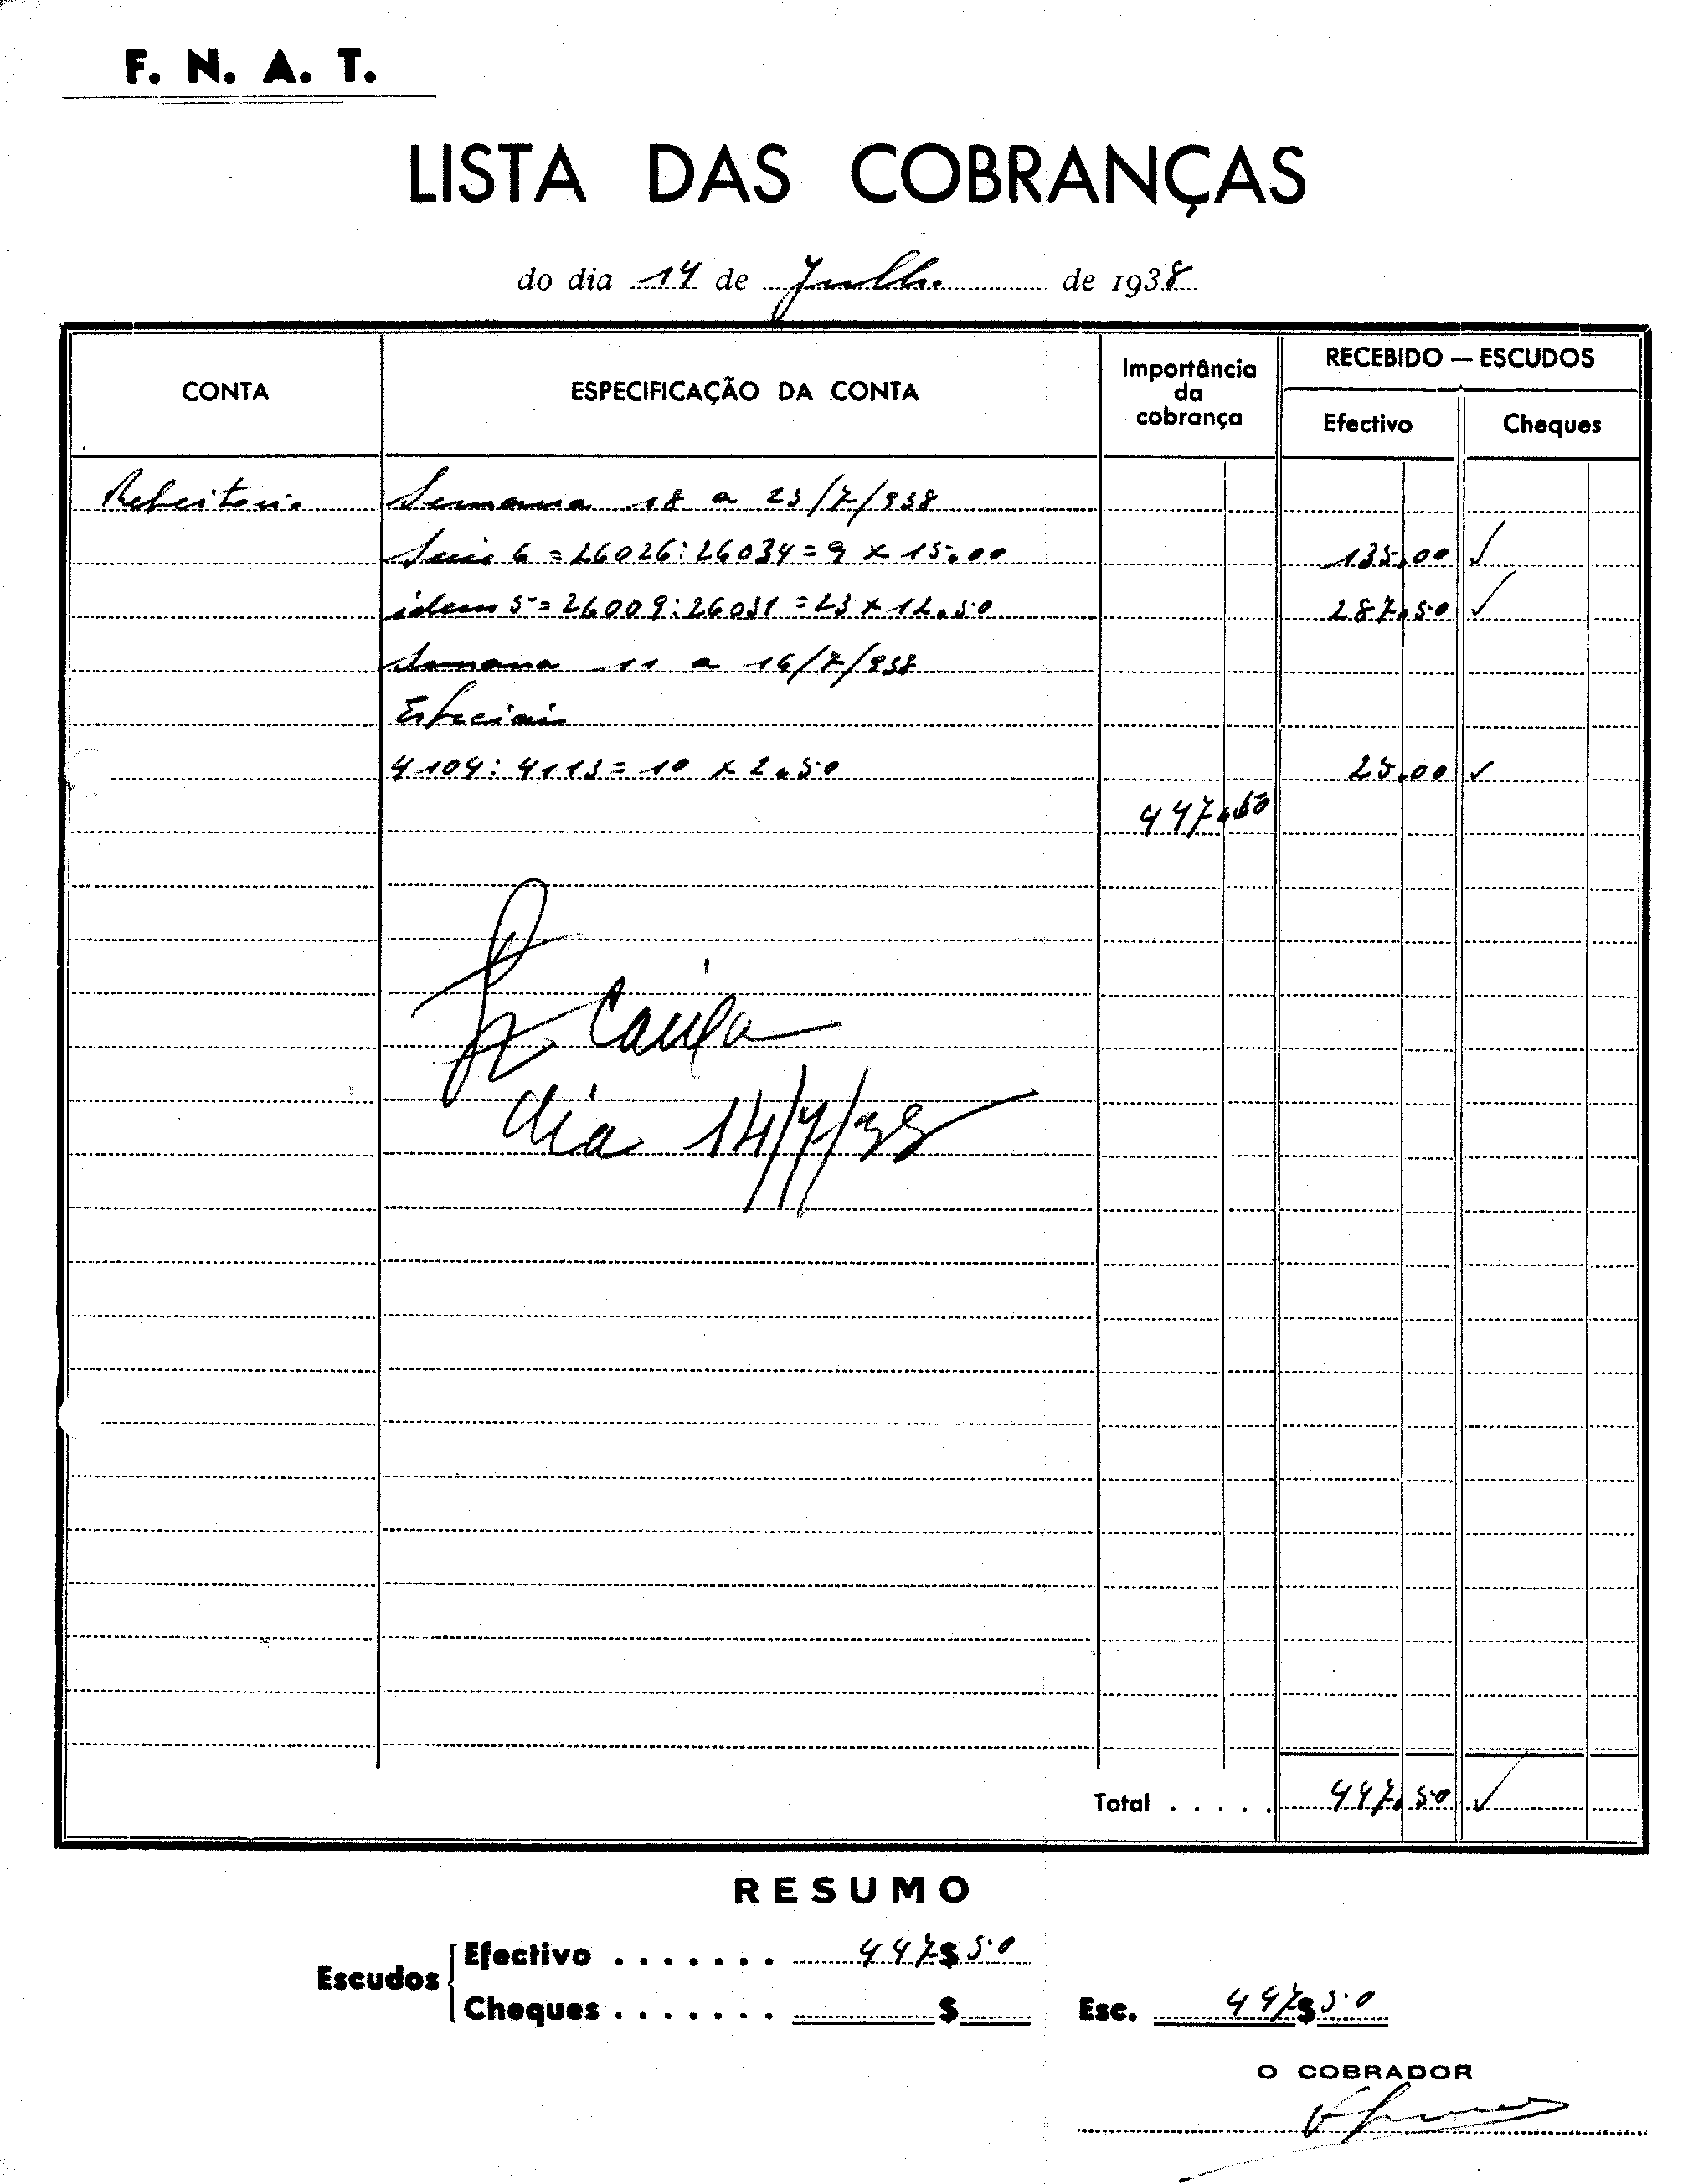 F. N. A. T.
LISTA DAS COBRANÇAS
do dia 14 de Julho de 1938
CONTA
ESPECIFICAÇÃO DA CONTA
Importância
da
cobrança
RECEBIDO — ESCUDOS
Efectivo
Cheques
Refeitorio Semana 18 a 23/7/938
Serie 6 = 26026:26034 = 9 x 15.00 135.00 ✓
idem 5 = 26009:26031 = 23 x 12.50 287.50 ✓
Semana 11 a 16/7/938
Especiais
4104:4113 = 10 x 2.50 25.00 ✓
447.50
Caixa
dia 14/7/38
Total . . . . . 447.50 ✓
RESUMO
Escudos
Efectivo . . . . . . . 447$50
Cheques . . . . . . . $
Esc. 447$50
O COBRADOR